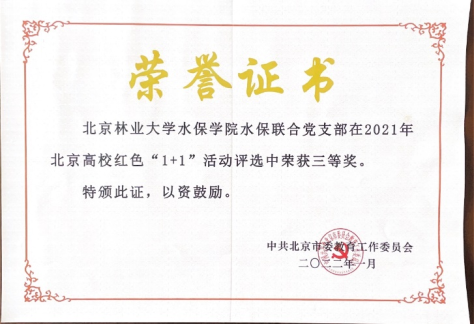 荣誉证书
北京林业大学水保学院水保联合党支部在2021年
北京高校红色“1+1”活动评选中荣获三等奖。
特颁此证，以资鼓励。
中共北京市委教育工作委员会
二〇二二年一月